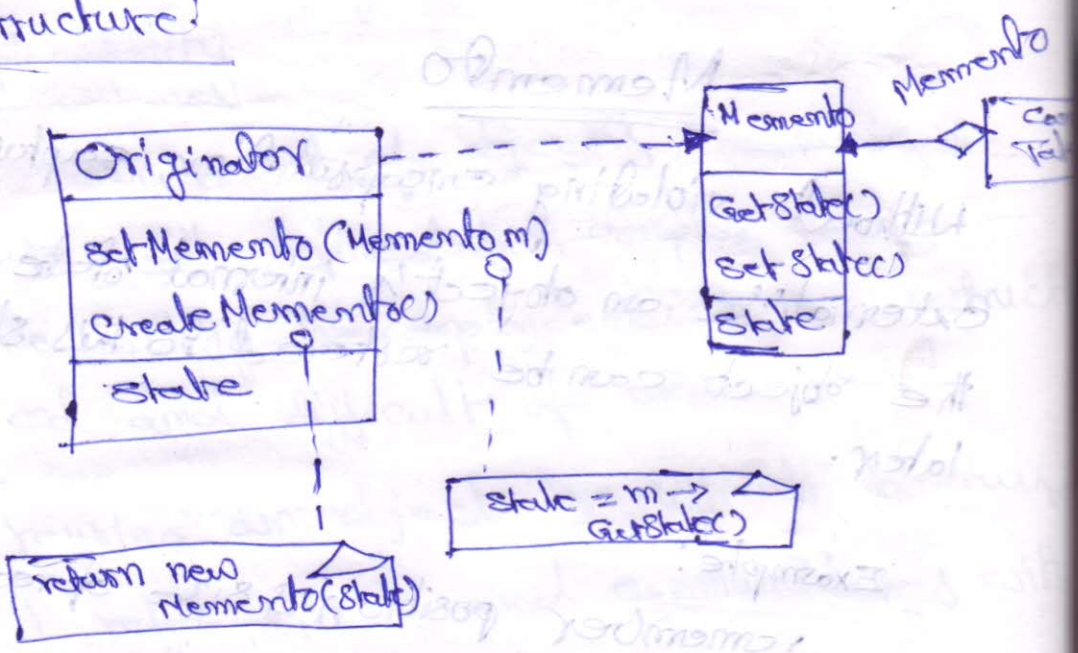 Structure:
Memento
Originator
setMemento (Memento m)
createMemento()
state
Memento
GetState()
setState()
State
state = m ->
GetState()
return new
Memento(State)